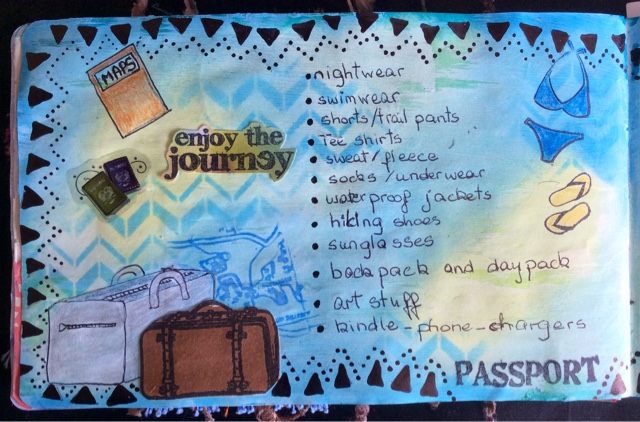 MAPS
enjoy the
journey
nightwear
swimwear
shorts/trail pants
Tee shirts
sweat/fleece
socks/underwear
waterproof jackets
hiking shoes
sunglasses
back pack and daypack
art stuff
kindle-phone-chargers
PASSPORT